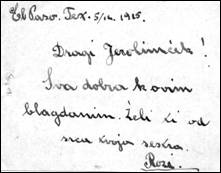 El Paso. Tex. 5/12. 1925.
Dragi Jerolimček!
Sva dobra k ovim
blagdanim. Želi ti od
srca tvoja sestra
Roži.